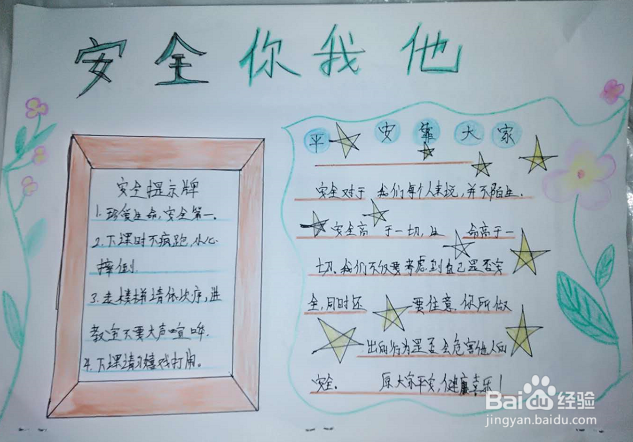 安全你我他
安全提示牌
1.珍爱生命,安全第一。
2.下课时不疯跑,小心
摔倒.
3.走楼梯请依次序,进
教室不要大声喧哗.
4.下课请勿嬉戏打闹。
平安靠大家
安全对于我们每个人来说,并不陌生.
安全高于一切,生命高于一
切.我们不仅要考虑到自己是否安
全,同时还要注意,你所做
出的行为是否会危害他人的
安全。 愿大家平安,健康喜乐!
Baidu经验
jingyan.baidu.com